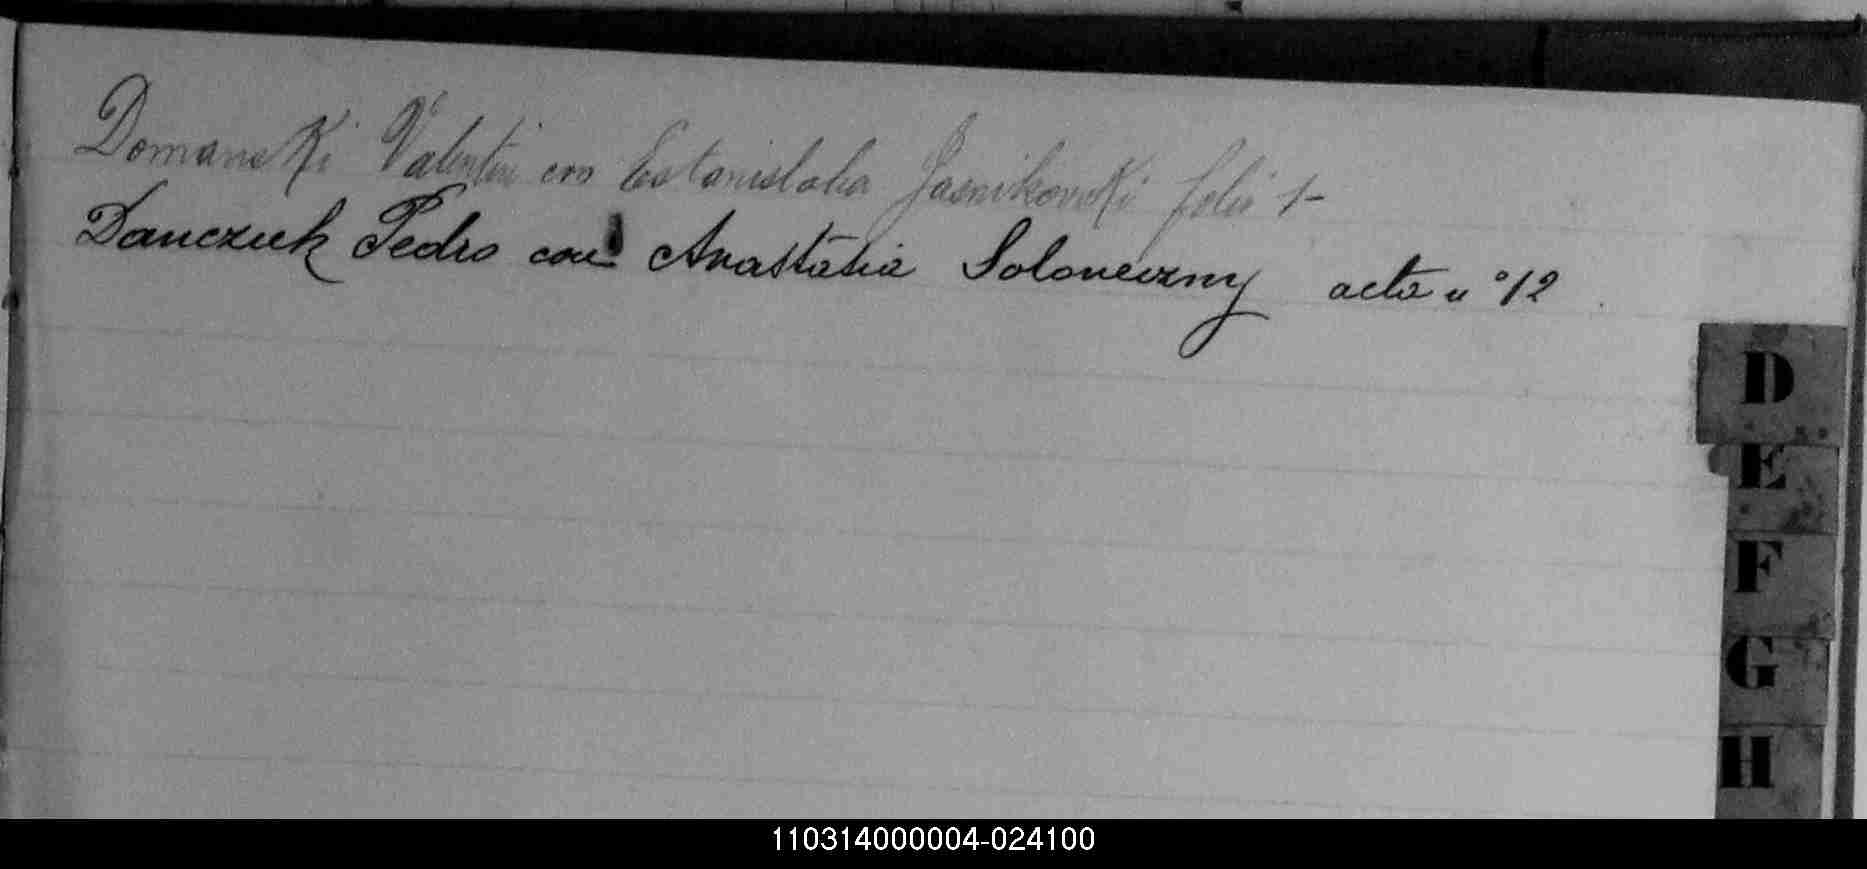 Domanski Valentin con Estanislaba Jasnikovski folio 1-
Danczuk Pedro con Anastasia Soloneczny acta n° 12
D
E
F
G
H
110314000004-024100